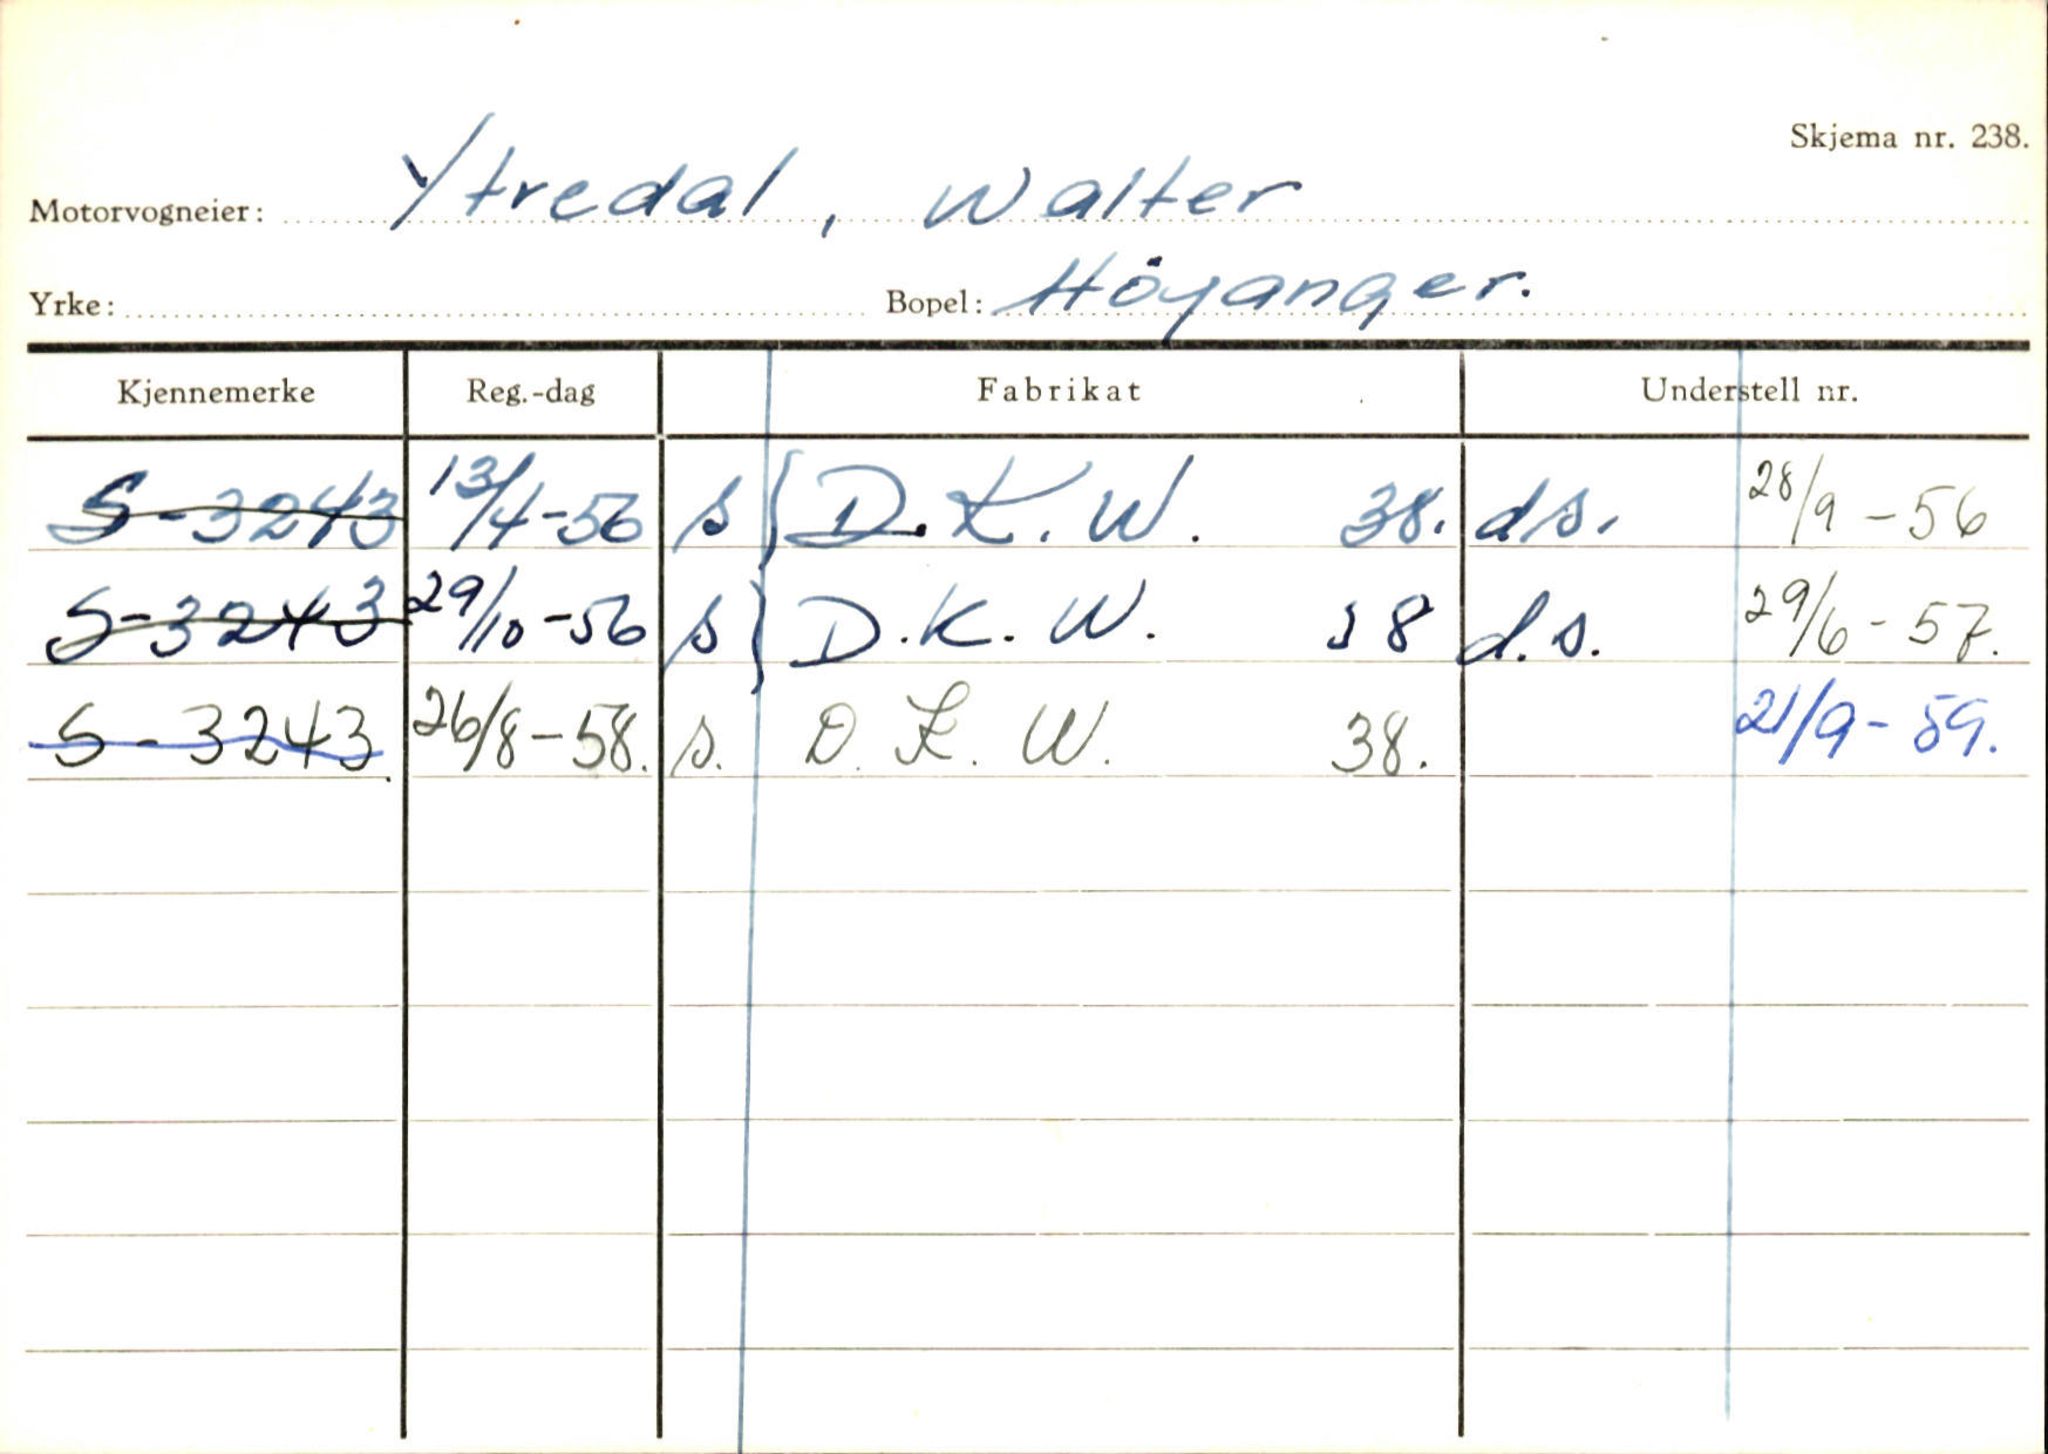 Skjema nr. 238.
Motorvogneier: Ytredal, Walter
Yrke: Bopel: Höyanger.
Kjennemerke Reg.-dag Fabrikat Understell nr.
S-3243 13/4-56 s D.K.W. 38. ds. 28/9-56
S-3243 29/10-56 s D.K.W. 38 d.s. 29/6-57.
S-3243. 26/8-58. s. D.K.W. 38. 21/9-59.